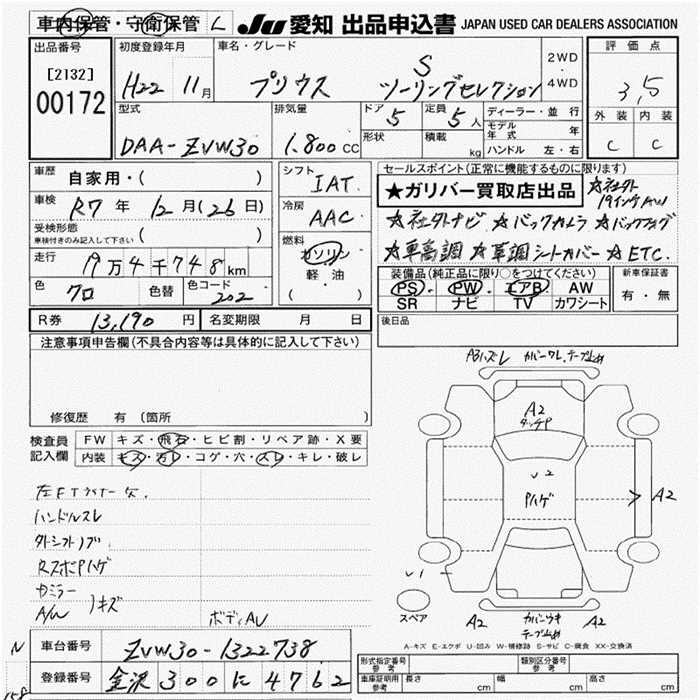 車内保管・守衛保管 L JU 愛知 出品申込書 JAPAN USED CAR DEALERS ASSOCIATION
出品番号 初度登録年月 車名・グレード 2WD・4WD 評価点
[2132] 00172 H22 年 11月 プリウス S ツーリングセレクション 3,5
型式 排気量 ドア 5 定員 5人 ディーラー・並行 外装 内装
モデル年式 年
DAA-ZVW30 1.800cc 形状 積載 kg ハンドル 左・右 C C
車歴 自家用・( ) シフト IAT セールスポイント(正常に機能するものに限ります)
★ガリバー買取店出品 ☆社外19インチAW
車検 R7年 12月(26日) 冷房 AAC ☆社外ナビ ☆バックカメラ ☆バックフォグ
受検形態 車検付きのみ記入して下さい ( ) ☆車高調 ☆革調シートカバー ☆ETC.
走行 19万4千748km 燃料 ガソリン 軽・油 ( ) 装備品(純正品に限り○をつけてください) 新車保証書
色 クロ 色替 色コード 202 PS PW エアB AW 有・無
SR ナビ TV カワシート
R券 13,190円 名変期限 月 日 後日品
注意事項申告欄(不具合内容等は具体的に記入して下さい)
修復歴 有 (箇所 )
検査員記入欄 FW キズ・飛石・ヒビ割・リペア跡・X要
内装 キズ・汚レ・コゲ・穴・スレ・キレ・破レ
ハンドルスレ
カシミラー
A/W キズ
A2
A2
Pハゲ
A2
カバーウキ
A2 A2
スペア
A-キズ E-エクボ U-凹み W-補修跡 S-サビ C-腐食 XX-交換済
N 車台番号 ZVW30-1322738
登録番号 金沢 300 に 4762
形式指定番号 参考 類別区分番号 参考
車庫証明用 参考 長さ cm 幅 cm 高さ cm